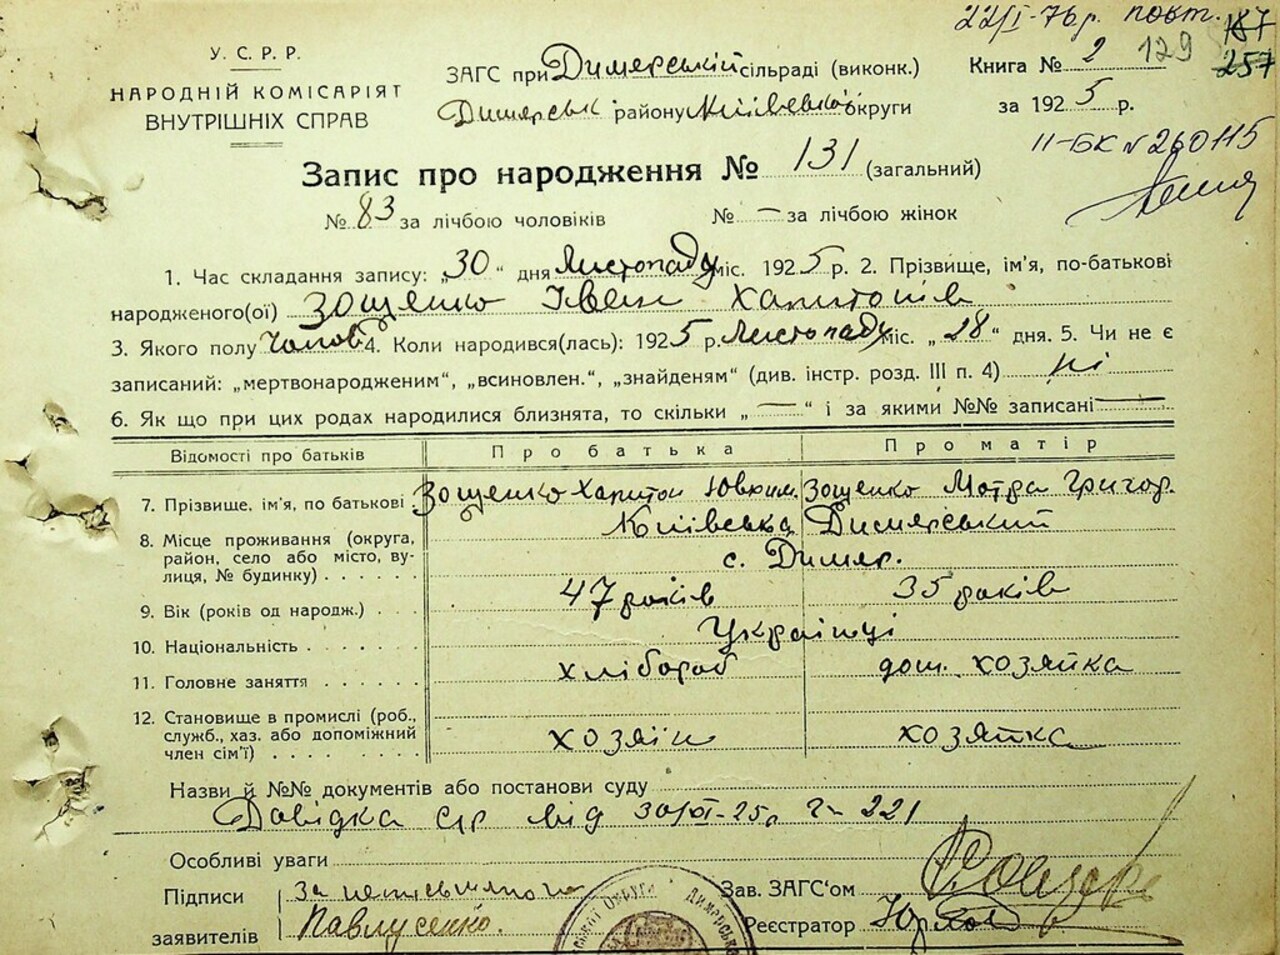 22/I-76р. повт. 187
129 257
У. С. Р. Р.
НАРОДНІЙ КОМІСАРІЯТ
ВНУТРІШНІХ СПРАВ
ЗАГС при Димерській сільраді (виконк.)
Димерськ району Київської округи
Книга № 2
за 1925 р.
II-БК № 260115
Запис про народження № 131 (загальний)
№ 83 за лічбою чоловіків № — за лічбою жінок
1. Час складання запису: „30“ дня Листопаду міс. 1925 р. 2. Прізвище, ім'я, по-батькові
народженого(ої) Зощенко Іван Харитонів
3. Якого полу Чолов 4. Коли народився(лась): 1925 р. Листопаду міс. „28“ дня. 5. Чи не є
записаний: „мертвонародженим“, „всиновлен.“, „знайденям“ (див. інстр. розд. III п. 4) ні
6. Як що при цих родах народилися близнята, то скільки „—“ і за якими №№ записані —
Відомості про батьків Про батька Про матір
7. Прізвище, ім'я, по батькові . Зощенко Харитон Ювхим. Зощенко Мотра Григор.
8. Місце проживання (округа, Київська Димерський
район, село або місто, ву- с. Димер.
лиця, № будинку) . . . . . .
9. Вік (років од народж.) . . . 47 років 35 років
10. Національність . . . . . . . Українці
11. Головне заняття . . . . . . хлібороб дом. хозяйка
12. Становище в промислі (роб.,
служб., хаз. або допоміжний хозяін хозяйка
член сім'ї) . . . . . . . . .
Назви й №№ документів або постанови суду
Довідка с/р від 30/XI-25р 221
Особливі уваги
Підписи за неписьменого Зав. ЗАГС'ом
заявителів Павлусенко. Реєстратор
ОКРУГА ДИМЕРСЬК